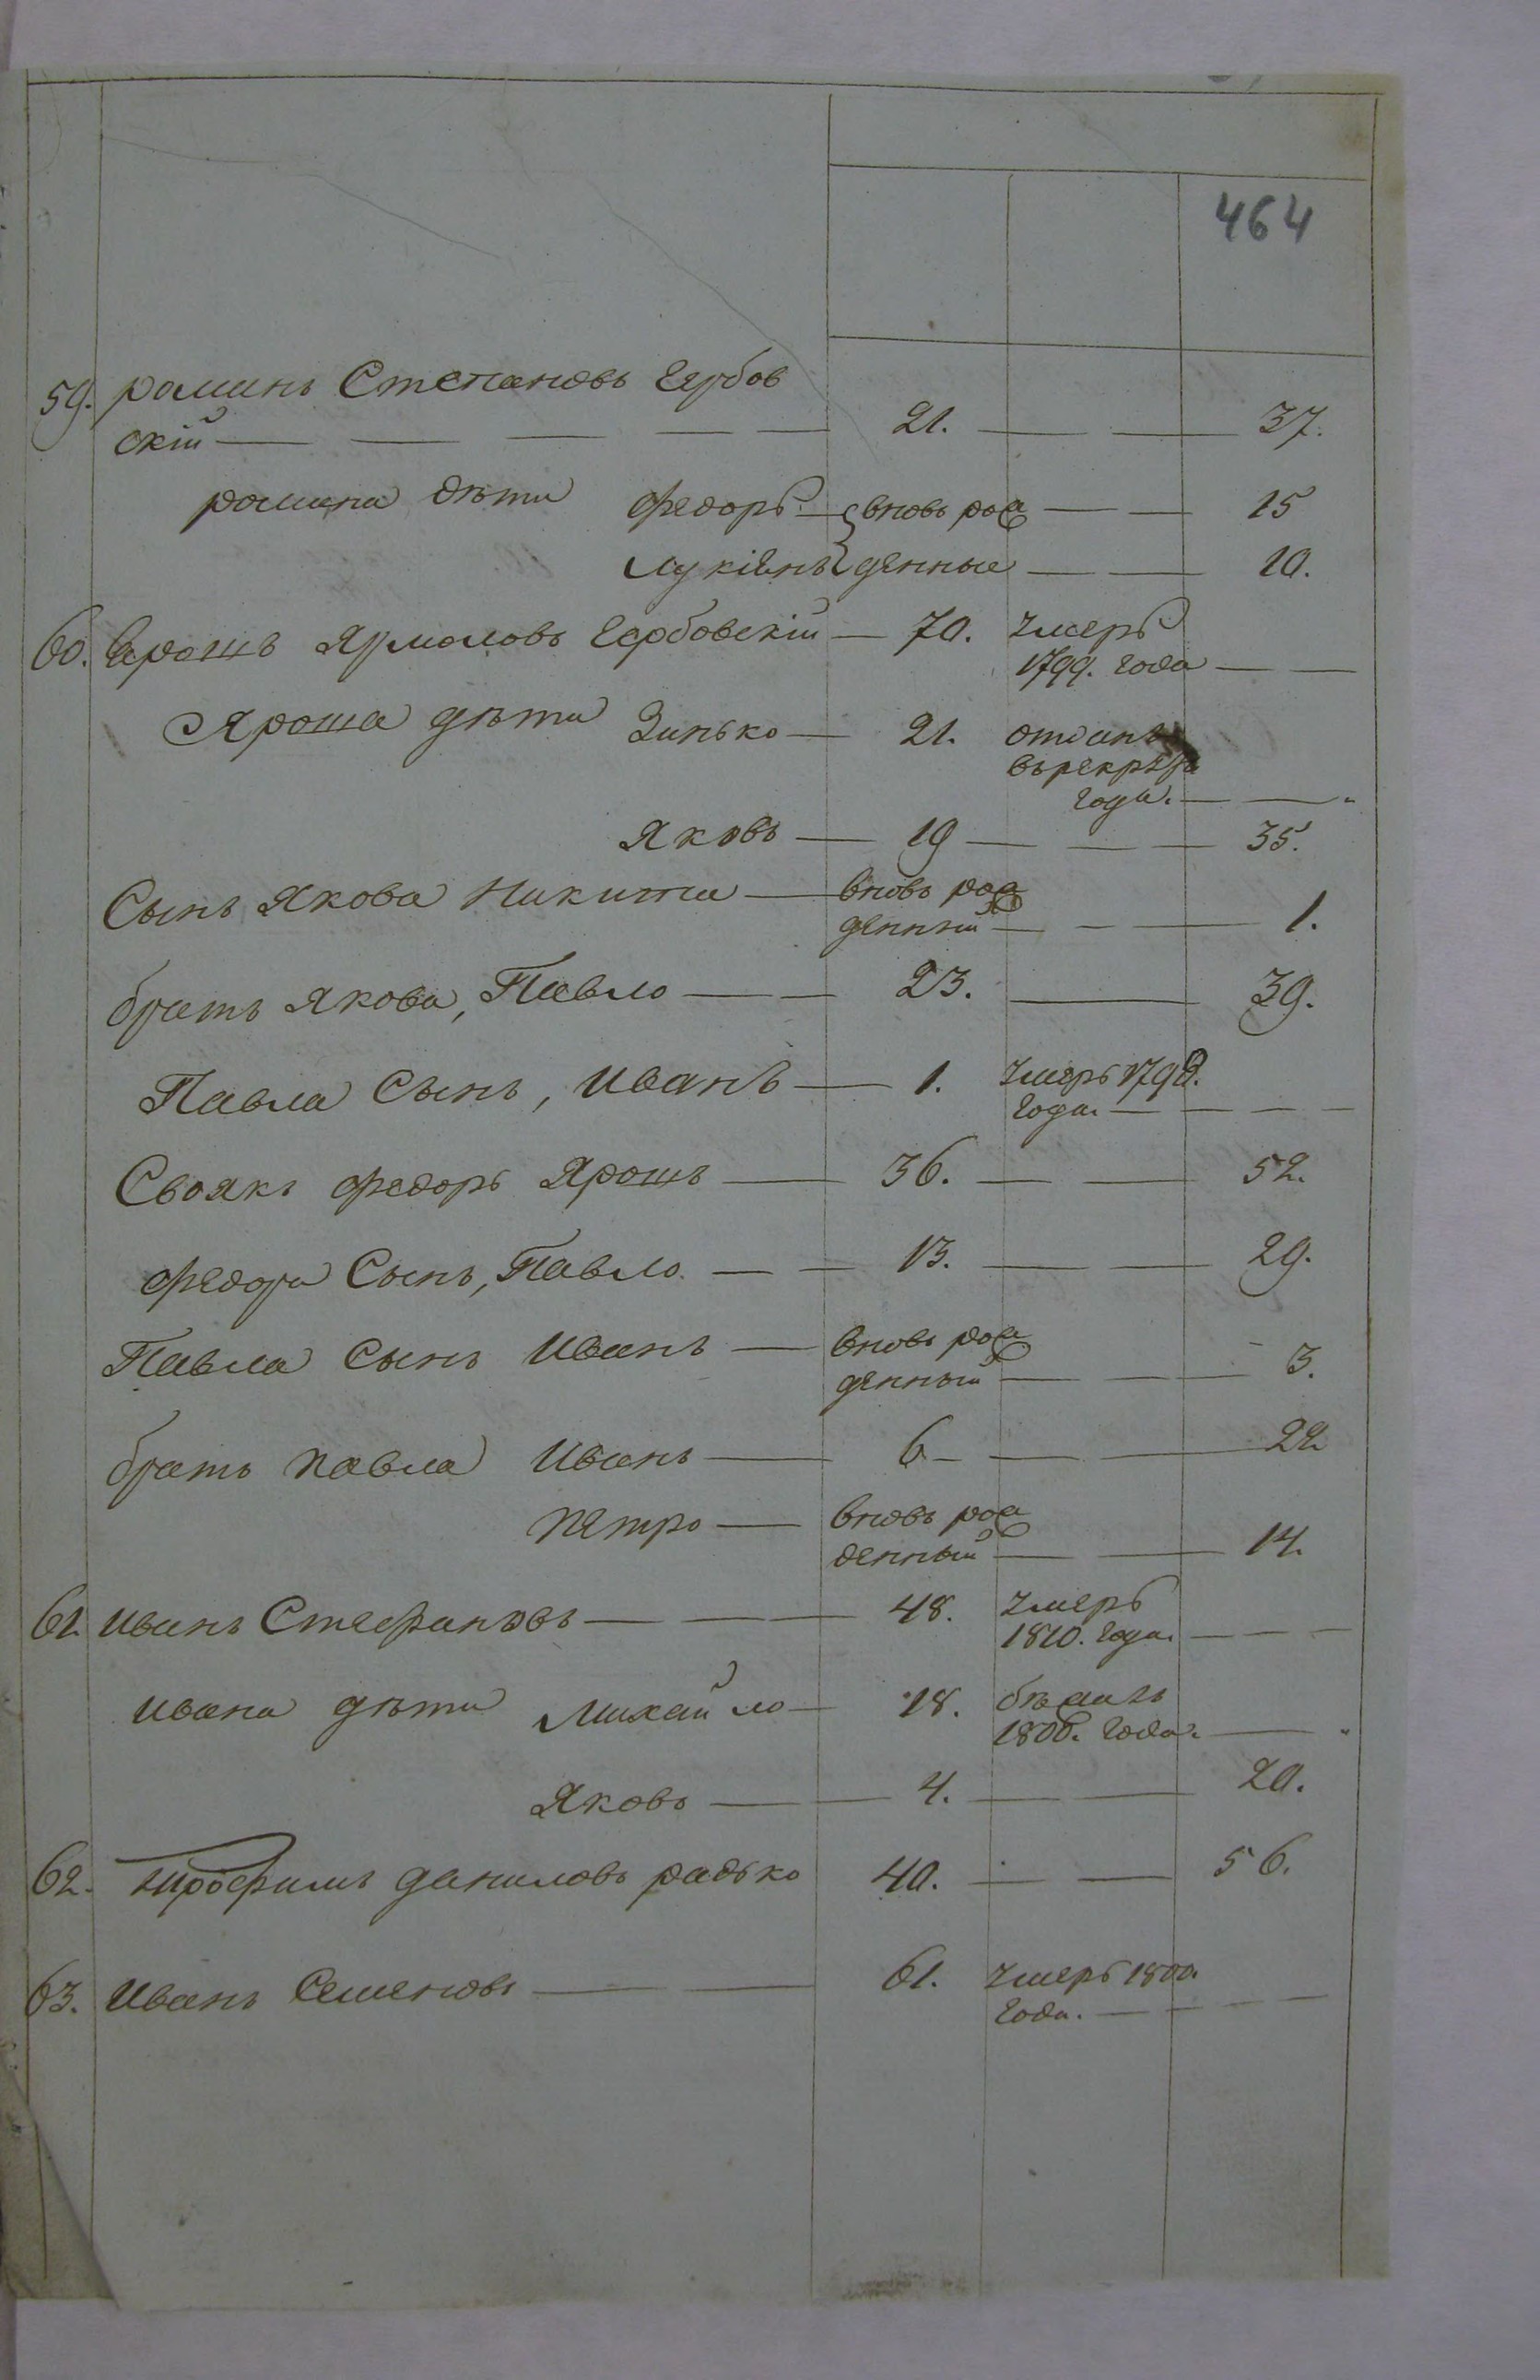 464
59. романъ Степановъ Гербов
скій — — — — — 21. — — 37.
романа дѣти Федоръ — вновь рож — — 15
Лукіянъ денные — — 10.
60. Ярошъ Ярмоловъ Гербовскій — 70. Умеръ
1799. года — —
Яроша дѣти Зинько — 21. отданъ
въ рекруты
года. — —
Яковъ — 19 — — — 35.
Сынъ Якова Никита — вновь рож
денный — — — 1.
братъ Якова, Павло — — 23. — 39.
Павла Сынъ, Иванъ — 1. Умеръ 1798.
года — — — —
Своякъ Федоръ Ярошъ — 36. — — 52.
Федора Сынъ, Павло — — 13. — — 29.
Павла Сынъ Иванъ — вновь рож
денный — — — 3.
братъ Павла Иванъ — 6 — — — 22
Петро — вновь рож
денный — — 14.
61. Иванъ Стефановъ — — — 48. Умеръ
1810. года — — —
Ивана дѣти Михайло — 18. бѣжалъ
1806. года. —
Яковъ — — 4. — — 20.
62. Трофимъ Даниловъ радько 40. — — 56.
63. Иванъ Семеновъ — — 61. Умеръ 1800.
года. — — — —